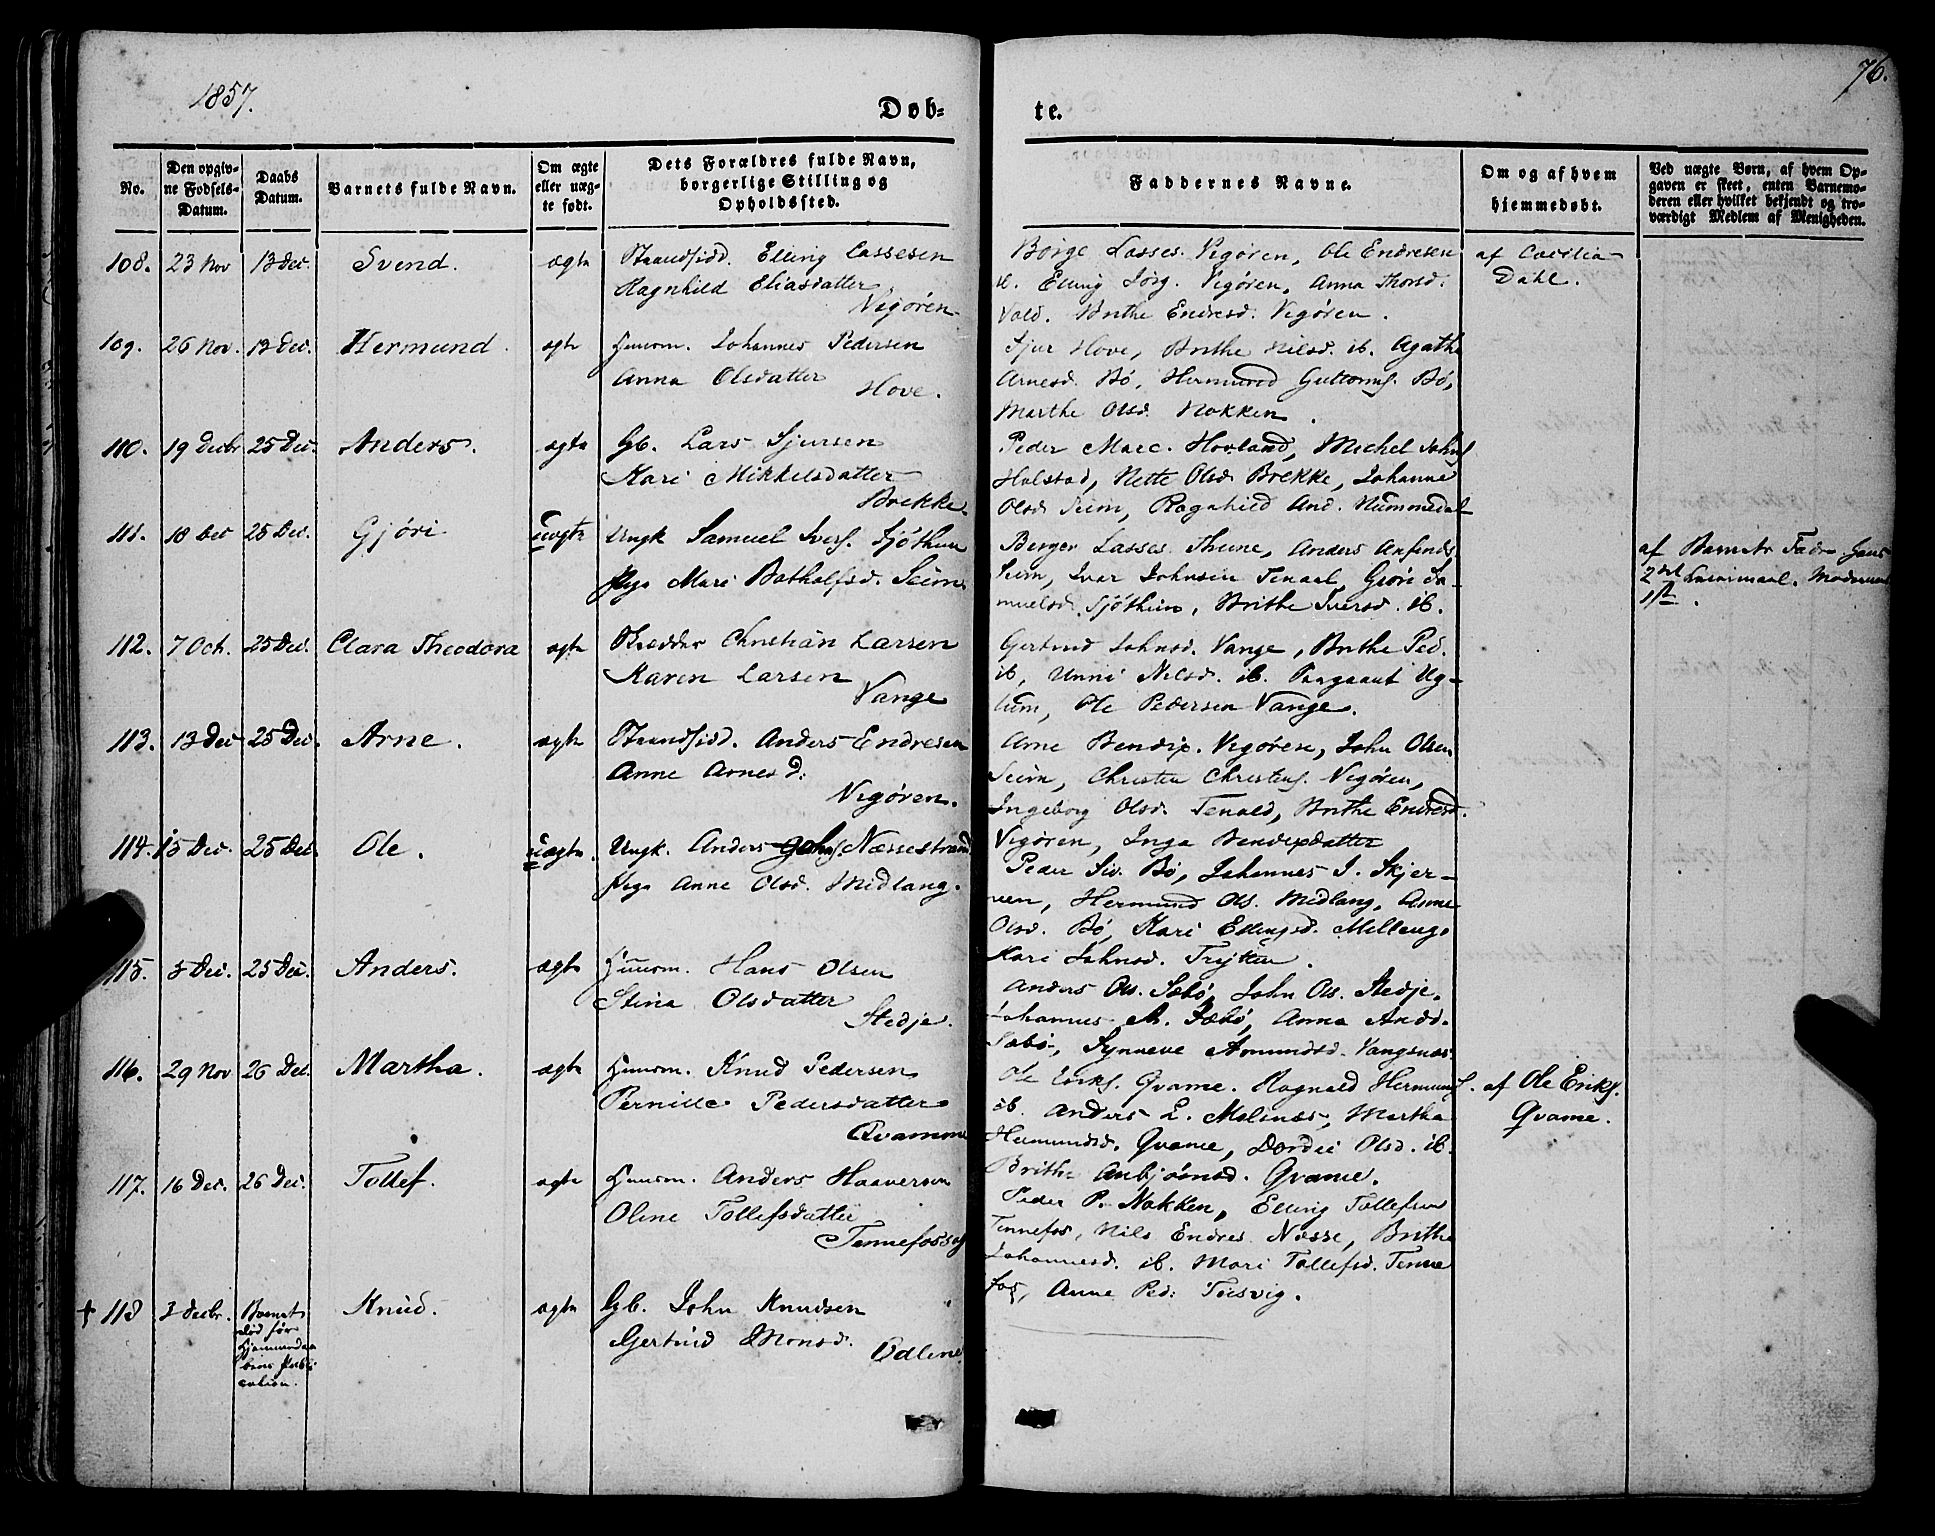 1857.
76.
Døb=
te.
No.
Den opgiv-
ne Fødsels-
Datum.
Daabs
Datum.
Barnets fulde Navn.
Om ægte
eller uæg-
te født.
Dets Forældres fulde Navn,
borgerlige Stilling og
Opholdssted.
Faddernes Navne.
Om og af hvem
hjemmedøbt.
Ved uægte Børn, af hvem Op-
gaven er skeet, enten Barnemo-
deren eller hvilket bekjendt og tro-
værdigt Medlem af Menigheden.
108. 23 Nov 13 Dec. Svend. ægte
Strandsidd. Elling Lassesen
Ragnhild Eliasdatter
Vigøren
Børge Lasses. Vigøren, Ole Endresen
ib. Elling Jørg. Vigøren, Anna Thorsd.
Vold. Brithe Endresd. Vigøren.
af Cecilia
Dahl.
109. 26 Nov. 13 Dec. Hermund. ægte
Huusm. Johannes Pedersen
Anna Olsdatter
Hove.
Sjur Hove, Brithe Nilsd. ib. Agathe
Arnesd. Bø, Hermund Guttorms. Bø,
Marthe Olsd. Nokken.
110. 19 Decbr 25 Dec. Anders. ægte
Gb. Lars Sjursen
Kari Mikkelsdatter
Brekke.
Peder Marc. Hovland, Michel Johns
Holstad, Nette Olsd. Brekke, Johanne
Olsd. Seim, Ragnhild And. Nummedal
111. 18 Dec 25 Dec. Gjøri uægte
Ungk. Samuel Ivers. Sjøthun
Pige Mari Botholfsd. Seim
Berger Lasses. Thune, Anders Anfinds
Seim, Ivar Johnsen Tenaal, Gjøri Sa-
muelsd. Sjøthun, Brithe Iversd. ib.
af Barnets Fader hans
2det Leiermaal. Moderens
1ste.
112. 7 Oct. 25 Dec. Clara Theodora ægte
Christian Larsen
Karen Larsen
Vange
Gertrud Johnsd. Vange, Brithe Ped.
ib, Unni Nilsd. ib. Ug-
lum, Ole Pedersen Vange.
113. 13 Dec 25 Dec. Arne. ægte
Strandsidd. Anders Endresen
Anne Arnesd:
Vigøren.
Arne Bendix. Vigøren, John Olsen
Seim, Christen Christens. Vigøren,
Ingeborg Olsd. Tenold, Brithe Endresd.
Vigøren, Inga Bendixdatter
114. 15 Dec. 25 Dec. Ole. uægte.
Ungk. Anders Johs. Næssestrand
Pige Anne Olsd. Midlang.
Peder Siv. Bø, Johannes I. Skjer-
veen, Hermund Ols. Midlang, Anne
Olsd. Bø, Kari Ellingsd. Mellang.
Kari Johnsd. Trytten.
115. 5 Dec. 25 Dec. Anders. ægte
Huusm. Hans Olsen
Stina Olsdatter
Stedje.
Anders Ols. Sæbø, John Ols. Stedje.
Johannes A. Sæbø, Anna Andd.
Sæbø, Synneve Amundsd. Vangsnæs
116. 29 Nov 26 Dec. Martha. ægte
Huusm. Knud Pedersen
Pernille Pedersdatter
Qvamme
Ole Eriks. Qvame. Ragnald Hermunds.
ib. Anders L. Melsnæs, Martha
Hermundsd. Qvame, Dordei Olsd. ib.
Brithe Anbjørnsd. Qvame.
af Ole Eriks.
Qvame.
117. 16 Dec. 26 Dec. Tollef. ægte
Huusm. Anders Haaversen
Oline Tollefsdatter
Tennefossen
Peder P. Nokken, Elling Tollefsen
Tennefos, Nils Endres. Næsse, Brithe
Johannesd. ib. Mari Tollefsd. Tenne
fos, Anne Ped: Tusvig.
† 118 3 Decbr. Barnet
død før
Hjemmedaa
bens Publi
cation.
Knud. ægte
Gb. John Knudsen
Gertrud Monsd.
Ødline